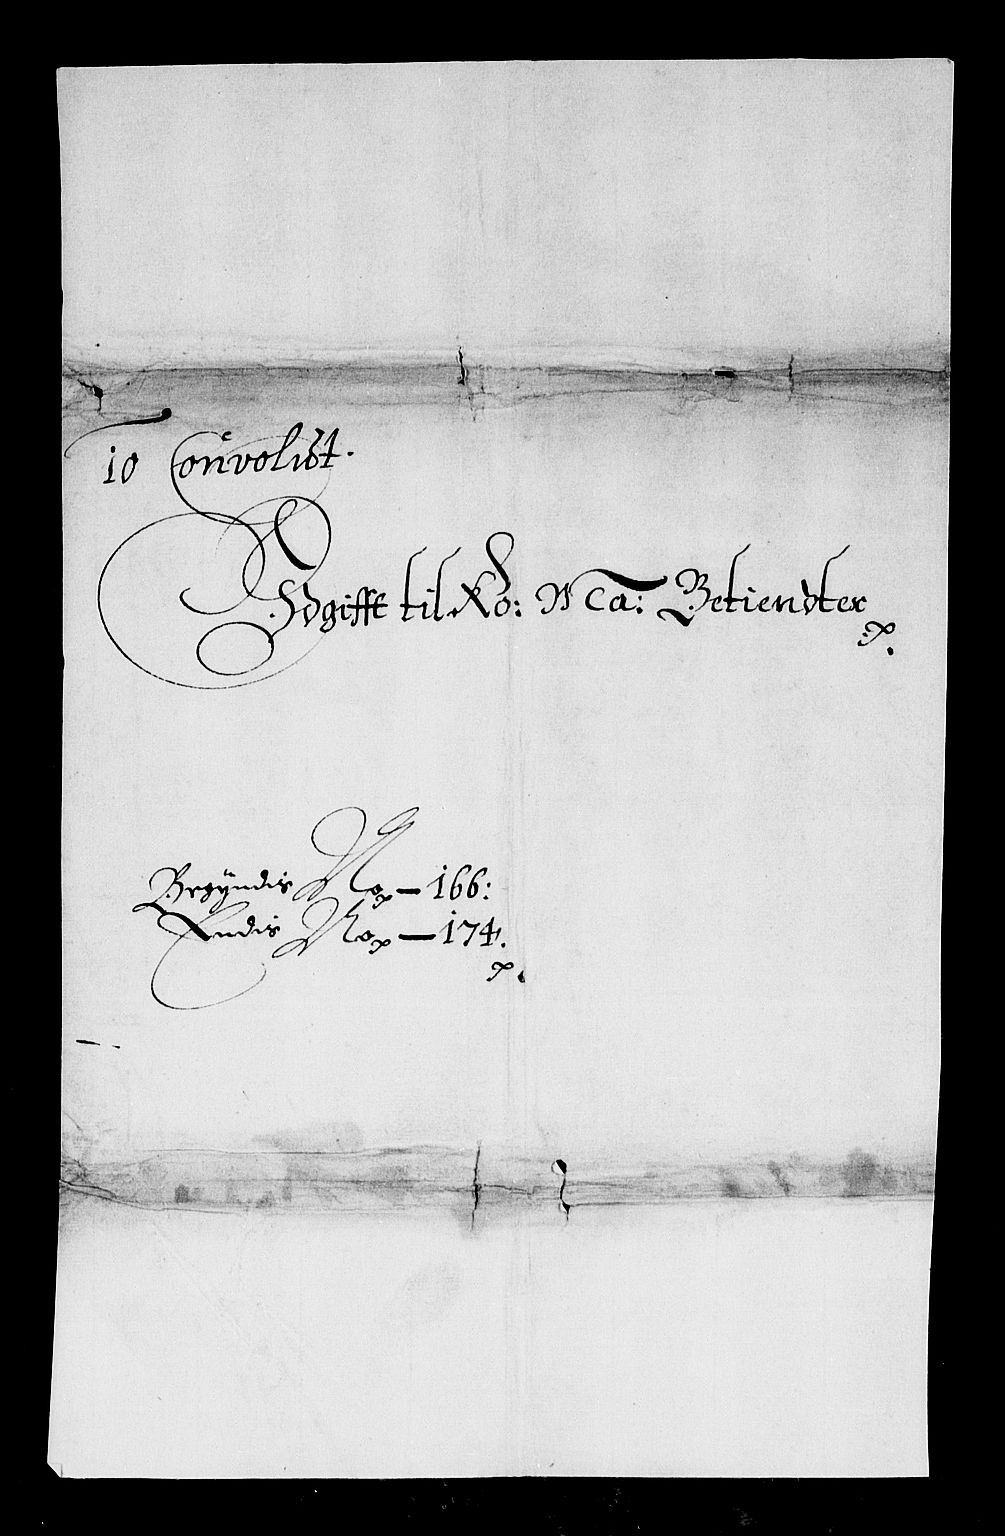 10 Convolut.
Udgifft til Ko: Ma: Betiendter
Begÿndis No — 166:
Endis No — 174.